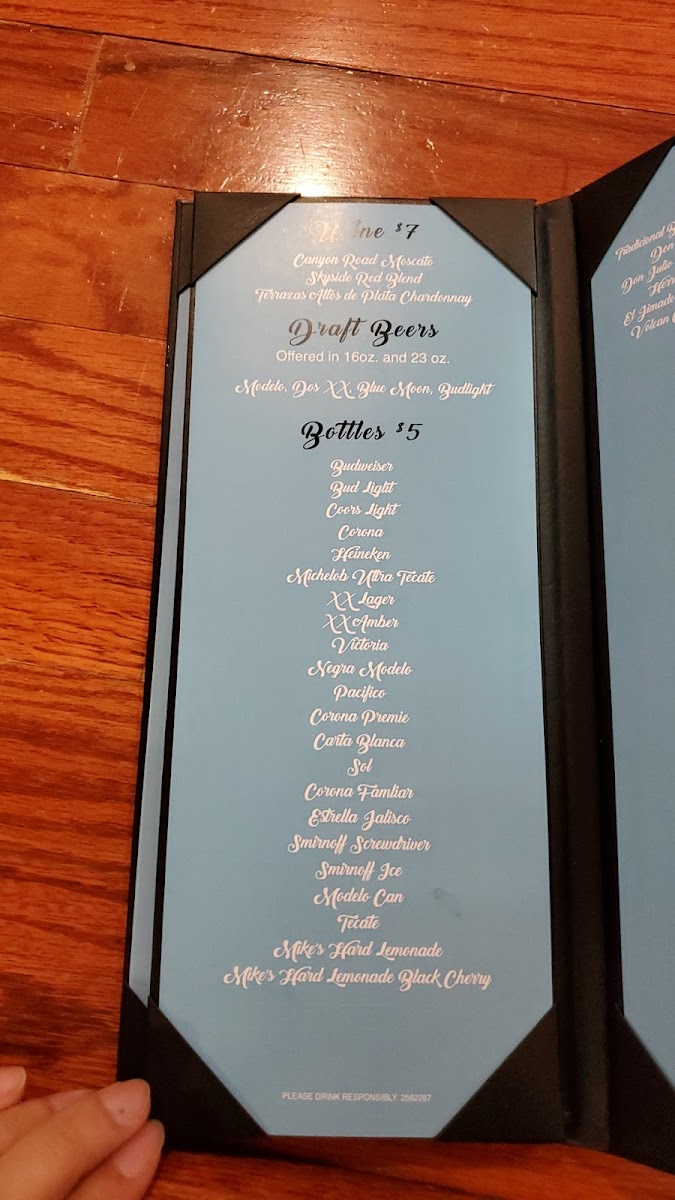 Wine $7
Canyon Road Moscato
Skyside Red Blend
Terrazas Altos de Plata Chardonnay
Draft Beers
Offered in 16oz. and 23 oz.
Modelo, Dos XX, Blue Moon, Budlight
Bottles $5
Budweiser
Bud Light
Coors Light
Corona
Heineken
Michelob Ultra Tecate
XX Lager
XX Amber
Victoria
Negra Modelo
Pacifico
Corona Premie
Carta Blanca
Sol
Corona Famliar
Estrella Jalisco
Smirnoff Screwdriver
Smirnoff Ice
Modelo Can
Tecate
Mike's Hard Lemonade
Mike's Hard Lemonade Black Cherry
PLEASE DRINK RESPONSIBLY. 2562267
Tradicional
Don
Don Julio
Herr
El Jimado
Volcan